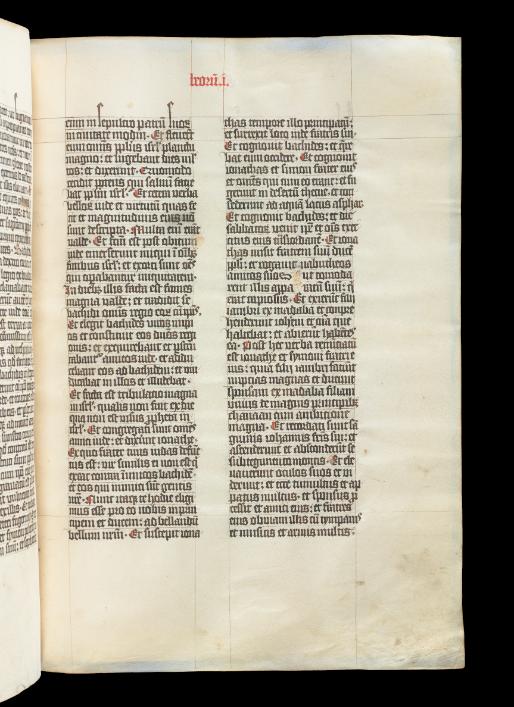 beorū.i.
eum in sepulcro patrū suoꝝ
in civitate modin. Et fleverūt
eum omīs ppl̄us isrl̄ planctu
magno: et lugebant dies mul
tos: et dixerunt. Quomodo
cecidit potens qui salvū facie
bat ppl̄m isrl̄. Et cetera verba
bellorꝫ iude et virtutū quas fe
cit et magnitudinis eius nō
sunt descripta. Multa enī erāt
valde. Et fcm̄ est post obitum
iude emerserunt iniqui ī oībꝫ
finibus isrl̄: et exorti sunt oēs
qui opabantur iniquitatem.
In diebꝫ illis facta est fames
magna valde: et tradidit se
bachidi omīs regio eoꝝ cū ip̄is.
Et elegit bachides viros impi
os et constituit eos dn̄os regi
onis: et exquirebant et pscru
tabant amicos iude. et addu
cebant eos ad bachidem: et vin
dicabat in illos et illudebat.
Et facta est tribulatio magna
in isrl̄. qualis non fuit ex die
qua non est visus ppheta in
isrl̄. Et congregati sunt omēs
amici iude: et dixerunt ionathe.
Ex quo frater tuus iudas defūct
tus est: vir similis ei non est q
exeat contra inimicos bachidē.
et eos qui inimici sūt gentis
nr̄e. Nunc itaqꝫ te hodie elegi
mus esse pro eo nobis in prin
cipem et ducem: ad bellandū
bellum nrm̄. Et suscepit iona
thas tempore illo principatū:
et surrexit loco iude fratris sui.
Et cognovit bachides: et que
bat eum occidere. Et cognovit
ionathas et simon frater eius
et omēs qui cum eo erant: et fu
gerunt in desertū thecue. et con
sederunt ad aquā lacus asphar.
Et cognovit bachides: et die
sabbatoꝝ venit ip̄e et oīs exer
citus eius trās iordanē. Et iona
thas misit fratrem suū ducē
ppl̄i: et rogavit nabutheos
amicos suos ut comoda
rent illis appa ratū suū: q̄
erat copiosus. Et exierūt filii
iambri ex madaba et compre
henderunt iohēm et oīa que
habebat: et abierūt habētes
ea. Post hec verba renūtiatū
est ionathe et symoni fratri e
ius: quia filii iambri faciūt
nuptias magnas et ducunt
sponsam ex madaba filiam
unius de magnis principibꝫ
chanaan cum ambitione
magna. Et recordati sunt sā
guinis iohannis fris̄ sui: et
ascenderunt et absconderūt se
sub tegumento montis. Et ele
vaverunt oculos suos et vi
derunt: et ecce tumultus et ap
patus multus. et sponsus p
cessit et amici eius: et fratres
eius obviam illis cū tympanis
et musicis et armis multis.